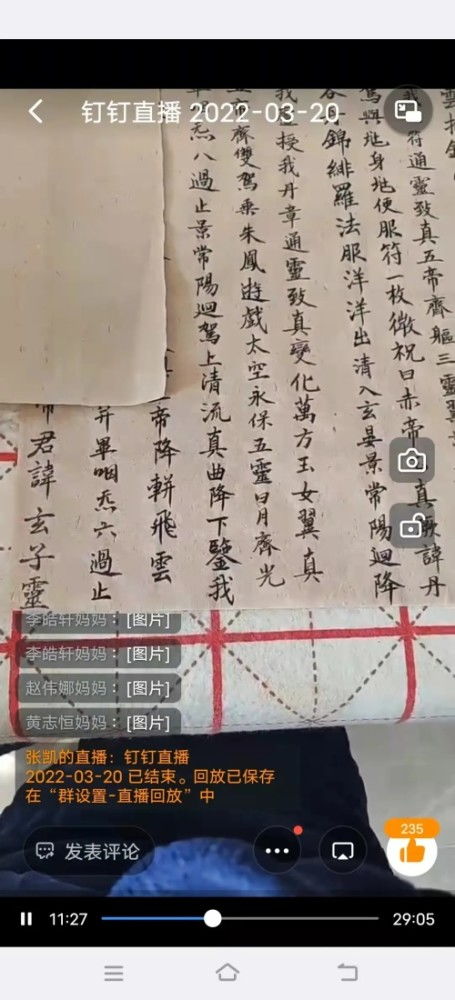 钉钉直播 2022-03-20
符通靈致真五帝齊軀三靈翼
身地便服符一枚微祝曰赤帝
真厥諱丹
錦緋羅法服洋洋出清入玄晏景常陽迴降
授我丹章通靈致真變化萬方玉女翼真
齊雙駕乘朱鳳遊戲太空永保五靈日月齊光
炁八過止景常陽迴駕上清流真曲降下鑒我
帝降軿飛雲
畢咽炁六過止
帝君諱玄子靈
李皓轩妈妈：[图片]
李皓轩妈妈：[图片]
赵伟娜妈妈：[图片]
黄志恒妈妈：[图片]
张凯的直播：钉钉直播
2022-03-20 已结束。回放已保存
在“群设置-直播回放”中
发表评论
235
11:27
29:05